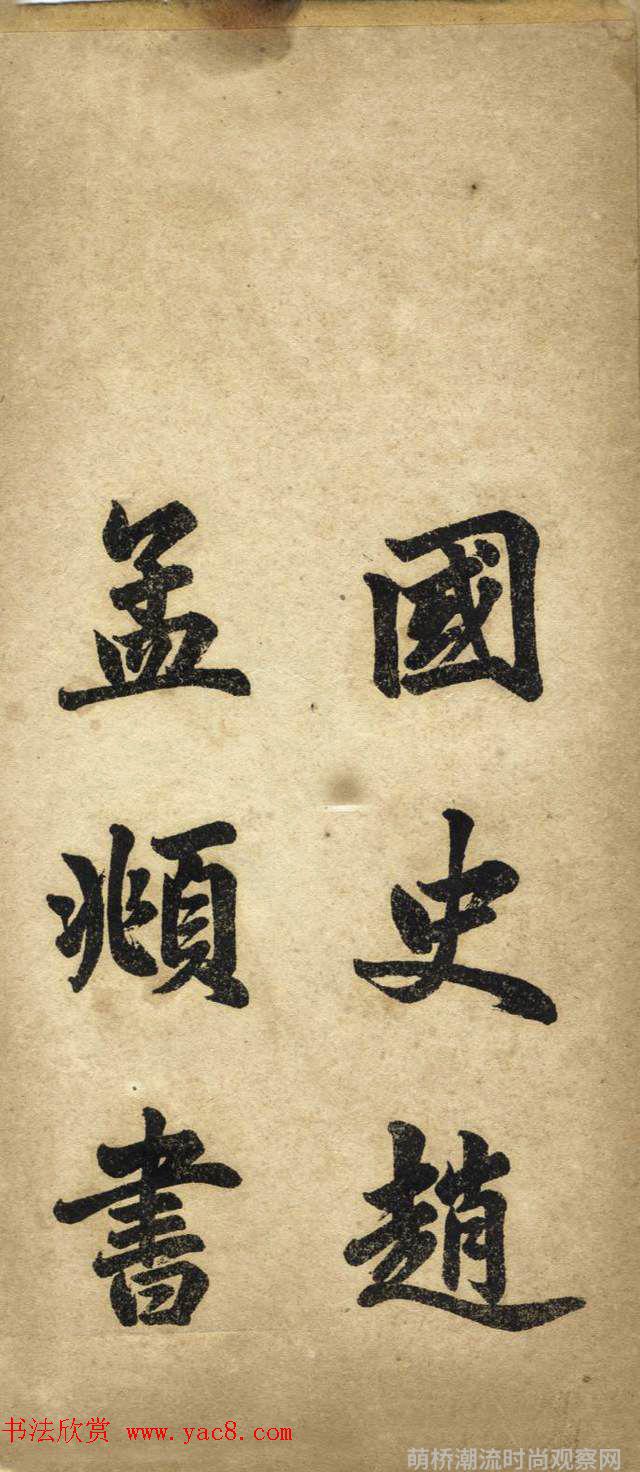 國史趙
孟頫書
书法欣赏 www.yac8.com
萌桥潮流时尚观察网